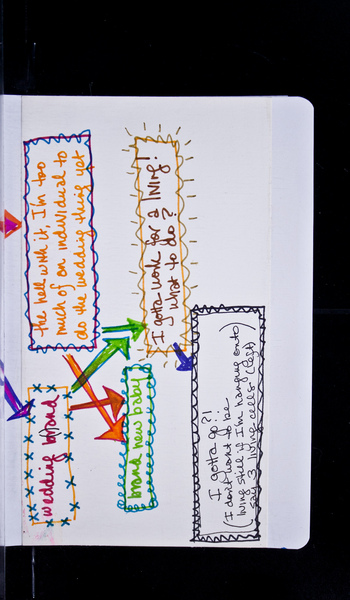 the hell with it, I'm too
much of an individual to
do the wedding thing yet
wedding brand
brand new baby
I gotta work for a living!
what to do?
I gotta go?!
(I don't want to be
living still if I'm hanging onto
say 3 living cells (left)